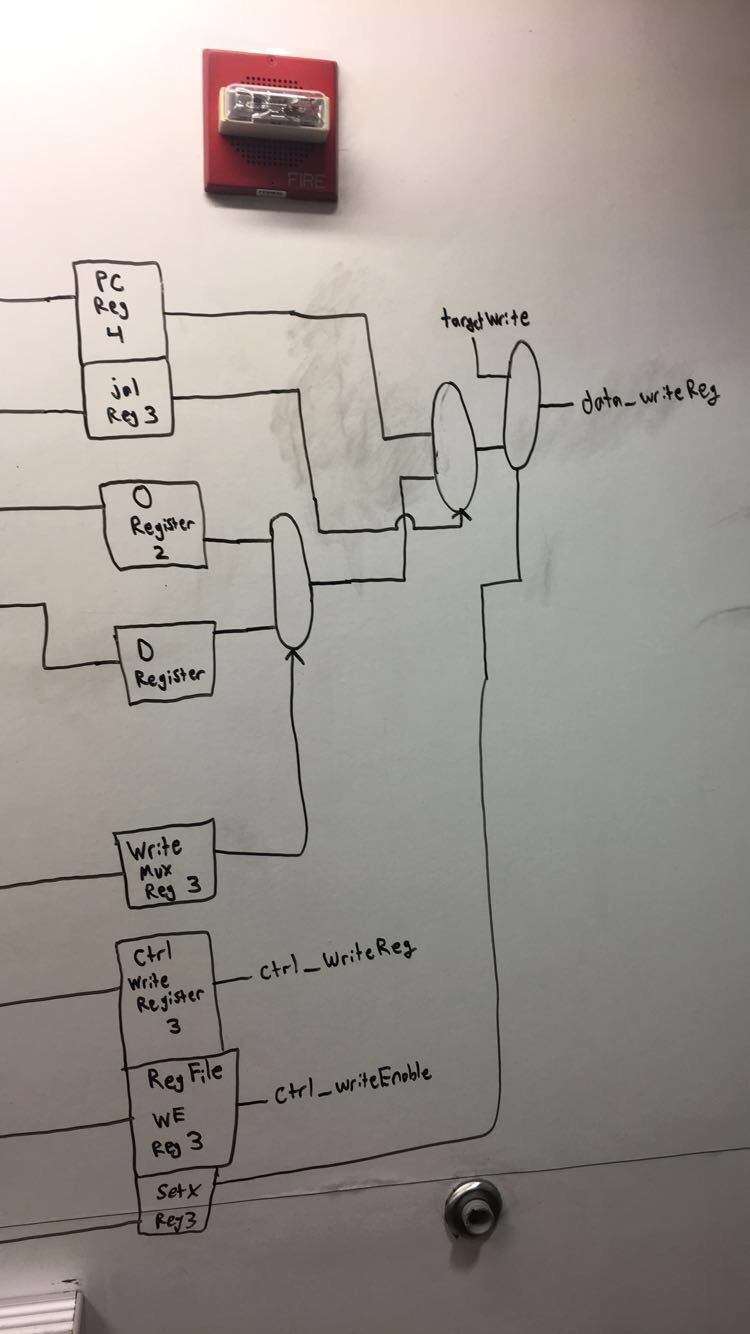 FIRE
PC
Reg
4
jal
Reg 3
targetWrite
data_writeReg
O
Register
2
D
Register
Write
Mux
Reg 3
Ctrl
Write
Register
3
Ctrl_WriteReg
RegFile
WE
Reg 3
Ctrl_writeEnable
Setx
Reg3